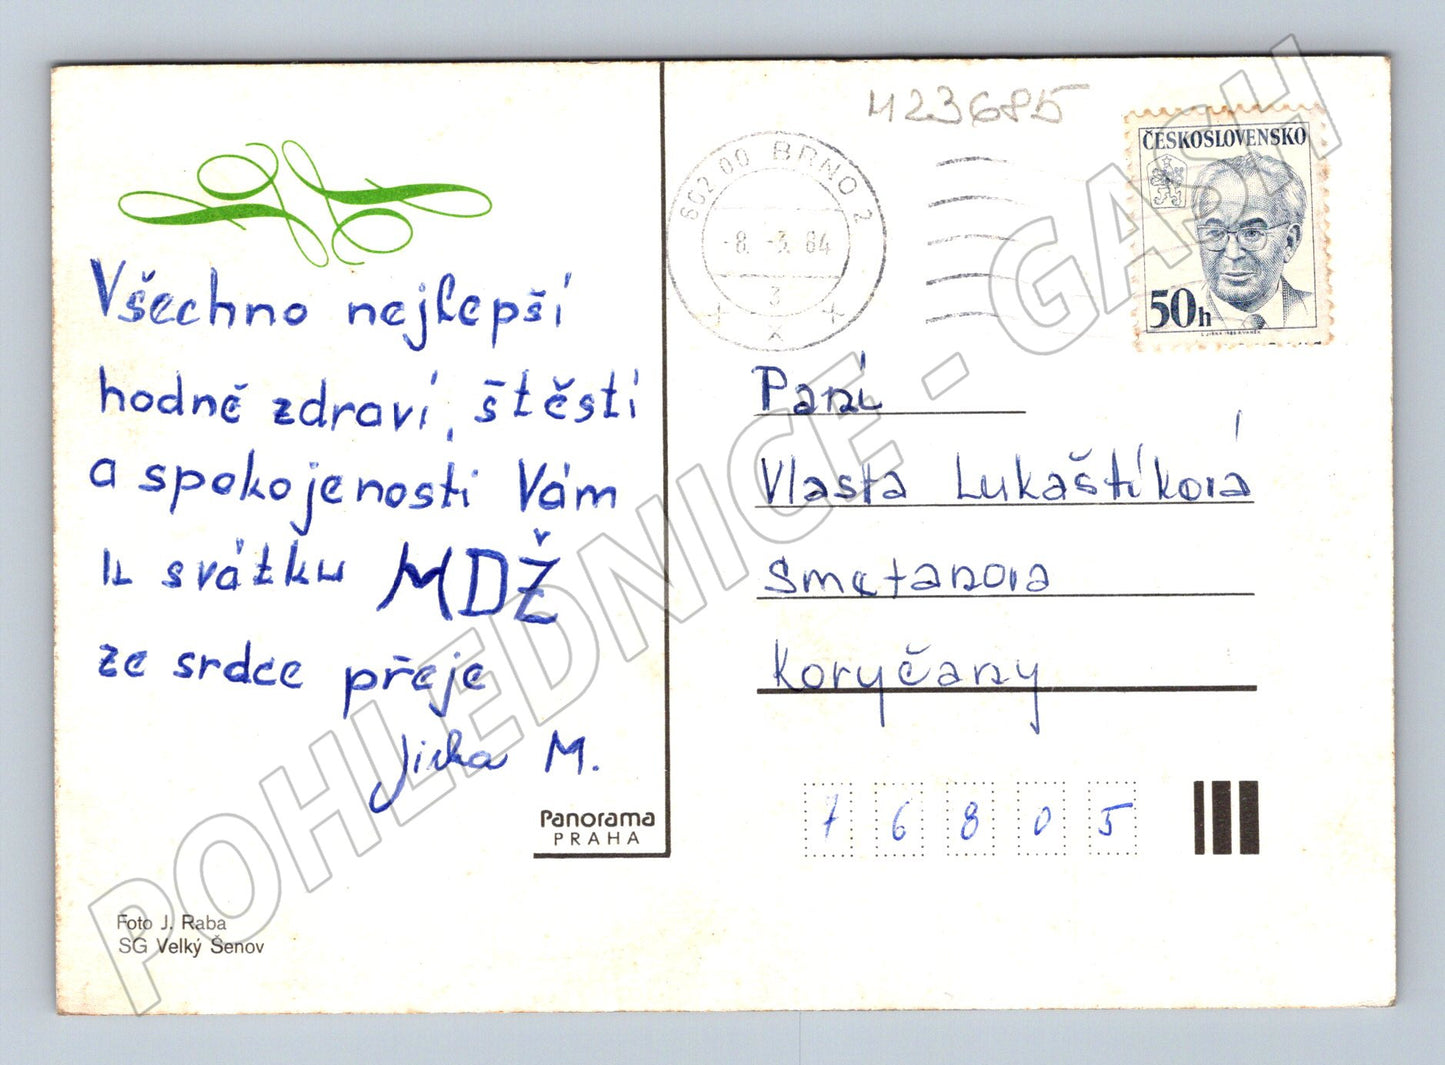 Všechno nejlepší
hodně zdraví, štěstí
a spokojenosti Vám
k svátku MDŽ
ze srdce přeje
Jirka M.
Panorama
PRAHA
Foto J. Raba
SG Velký Šenov
M23685
602 00 BRNO 2
-8.-3.84
3
ČESKOSLOVENSKO
50h
Paní
Vlasta Lukaštíková
Smetanova
Koryčany
76805
POHLEDNICE - GASH